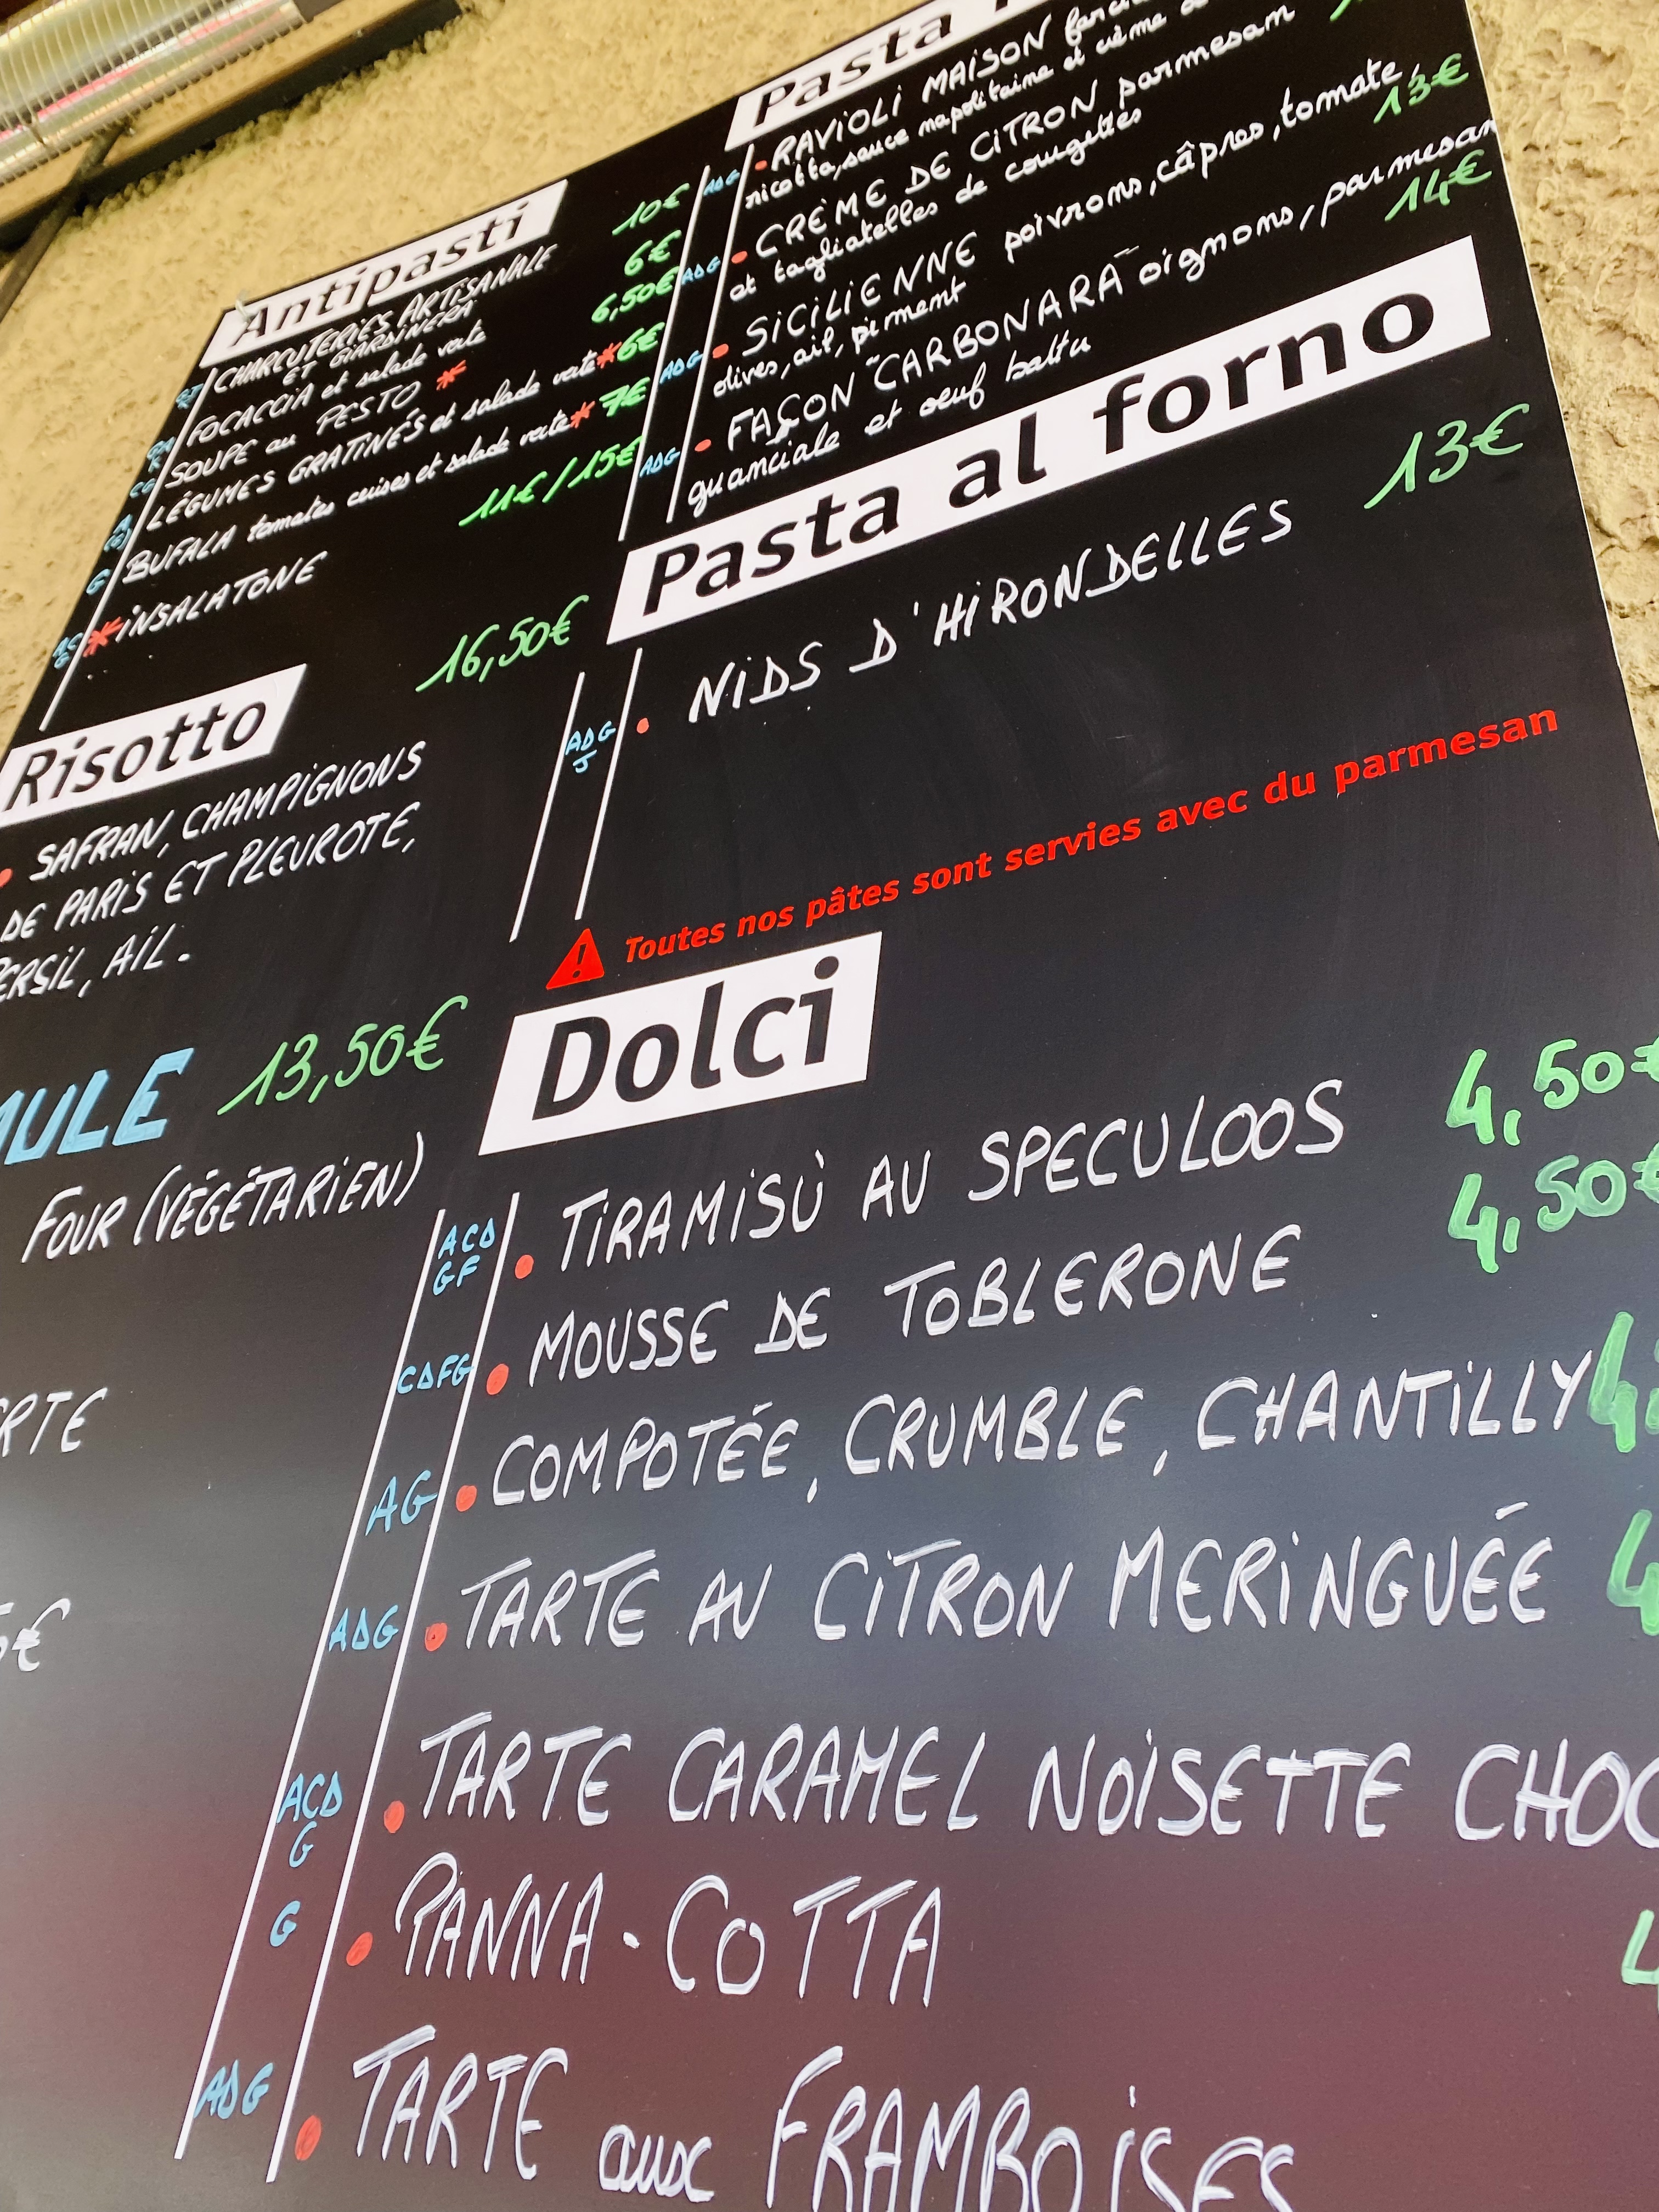 Antipasti
CHARCUTERIES ARTISANALE
ET GIARDINERA
10€
FOCACCIA et salade verte
6€
SOUPE au PESTO *
6,50€
LÉGUMES GRATINÉS et salade verte * 6€
BUFALA tomates cuises et salade verte * 7€
* INSALATONE
11€/15€
Risotto
16,50€
• SAFRAN, CHAMPIGNONS
DE PARIS ET PLEUROTE,
PERSIL, AIL.
MULE 13,50€
FOUR (VÉGÉTARIEN)
RTE
5€
Pasta
ADG • RAVIOLI MAISON
ricotta, sauce napolitaine et crème
ADG • CRÈME DE CITRON parmesam
et tagliatelles de courgettes
13€
ADG • SICILIENNE poivrons, câpres, tomate,
olives, ail, piment
14€
ADG • FAÇON "CARBONARA" oignons, parmesan
guanciale et oeuf battu
Pasta al forno
ADG
J
• NIDS D'HIRONDELLES
13€
Toutes nos pâtes sont servies avec du parmesan
Dolci
ACD
GF
• TIRAMISÙ AU SPECULOOS 4,50€
CDFG • MOUSSE DE TOBLERONE 4,50€
AG • COMPOTÉE, CRUMBLE, CHANTILLY 4,
ADG • TARTE AU CITRON MERINGUÉE 4
ACD
G
• TARTE CARAMEL NOISETTE CHOC
G • PANNA-COTTA 4
ADG • TARTE aux FRAMBOISES